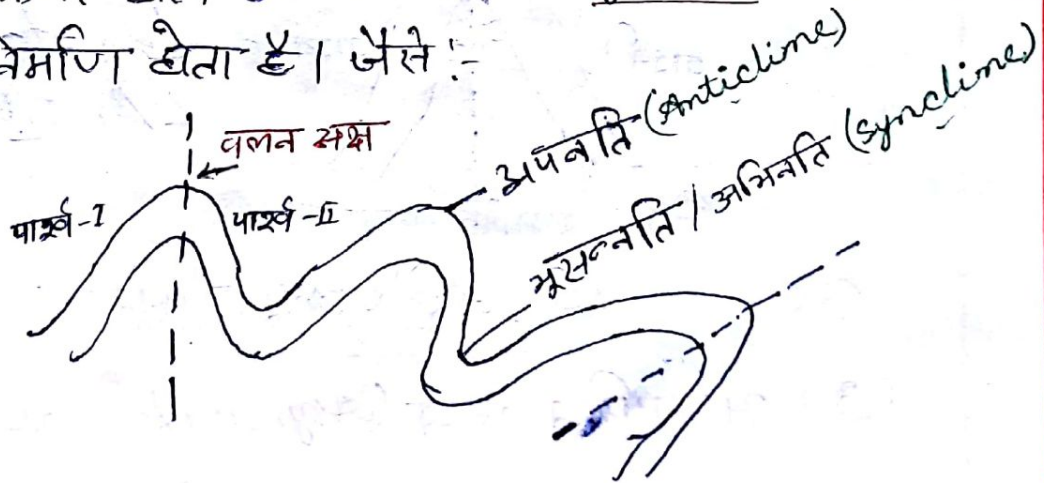 निर्माण होता है। जैसे:-
वलन अक्ष
पार्श्व-I
पार्श्व-II
अपनति (Anticline)
भूसन्नति / अभिनति (Syncline)